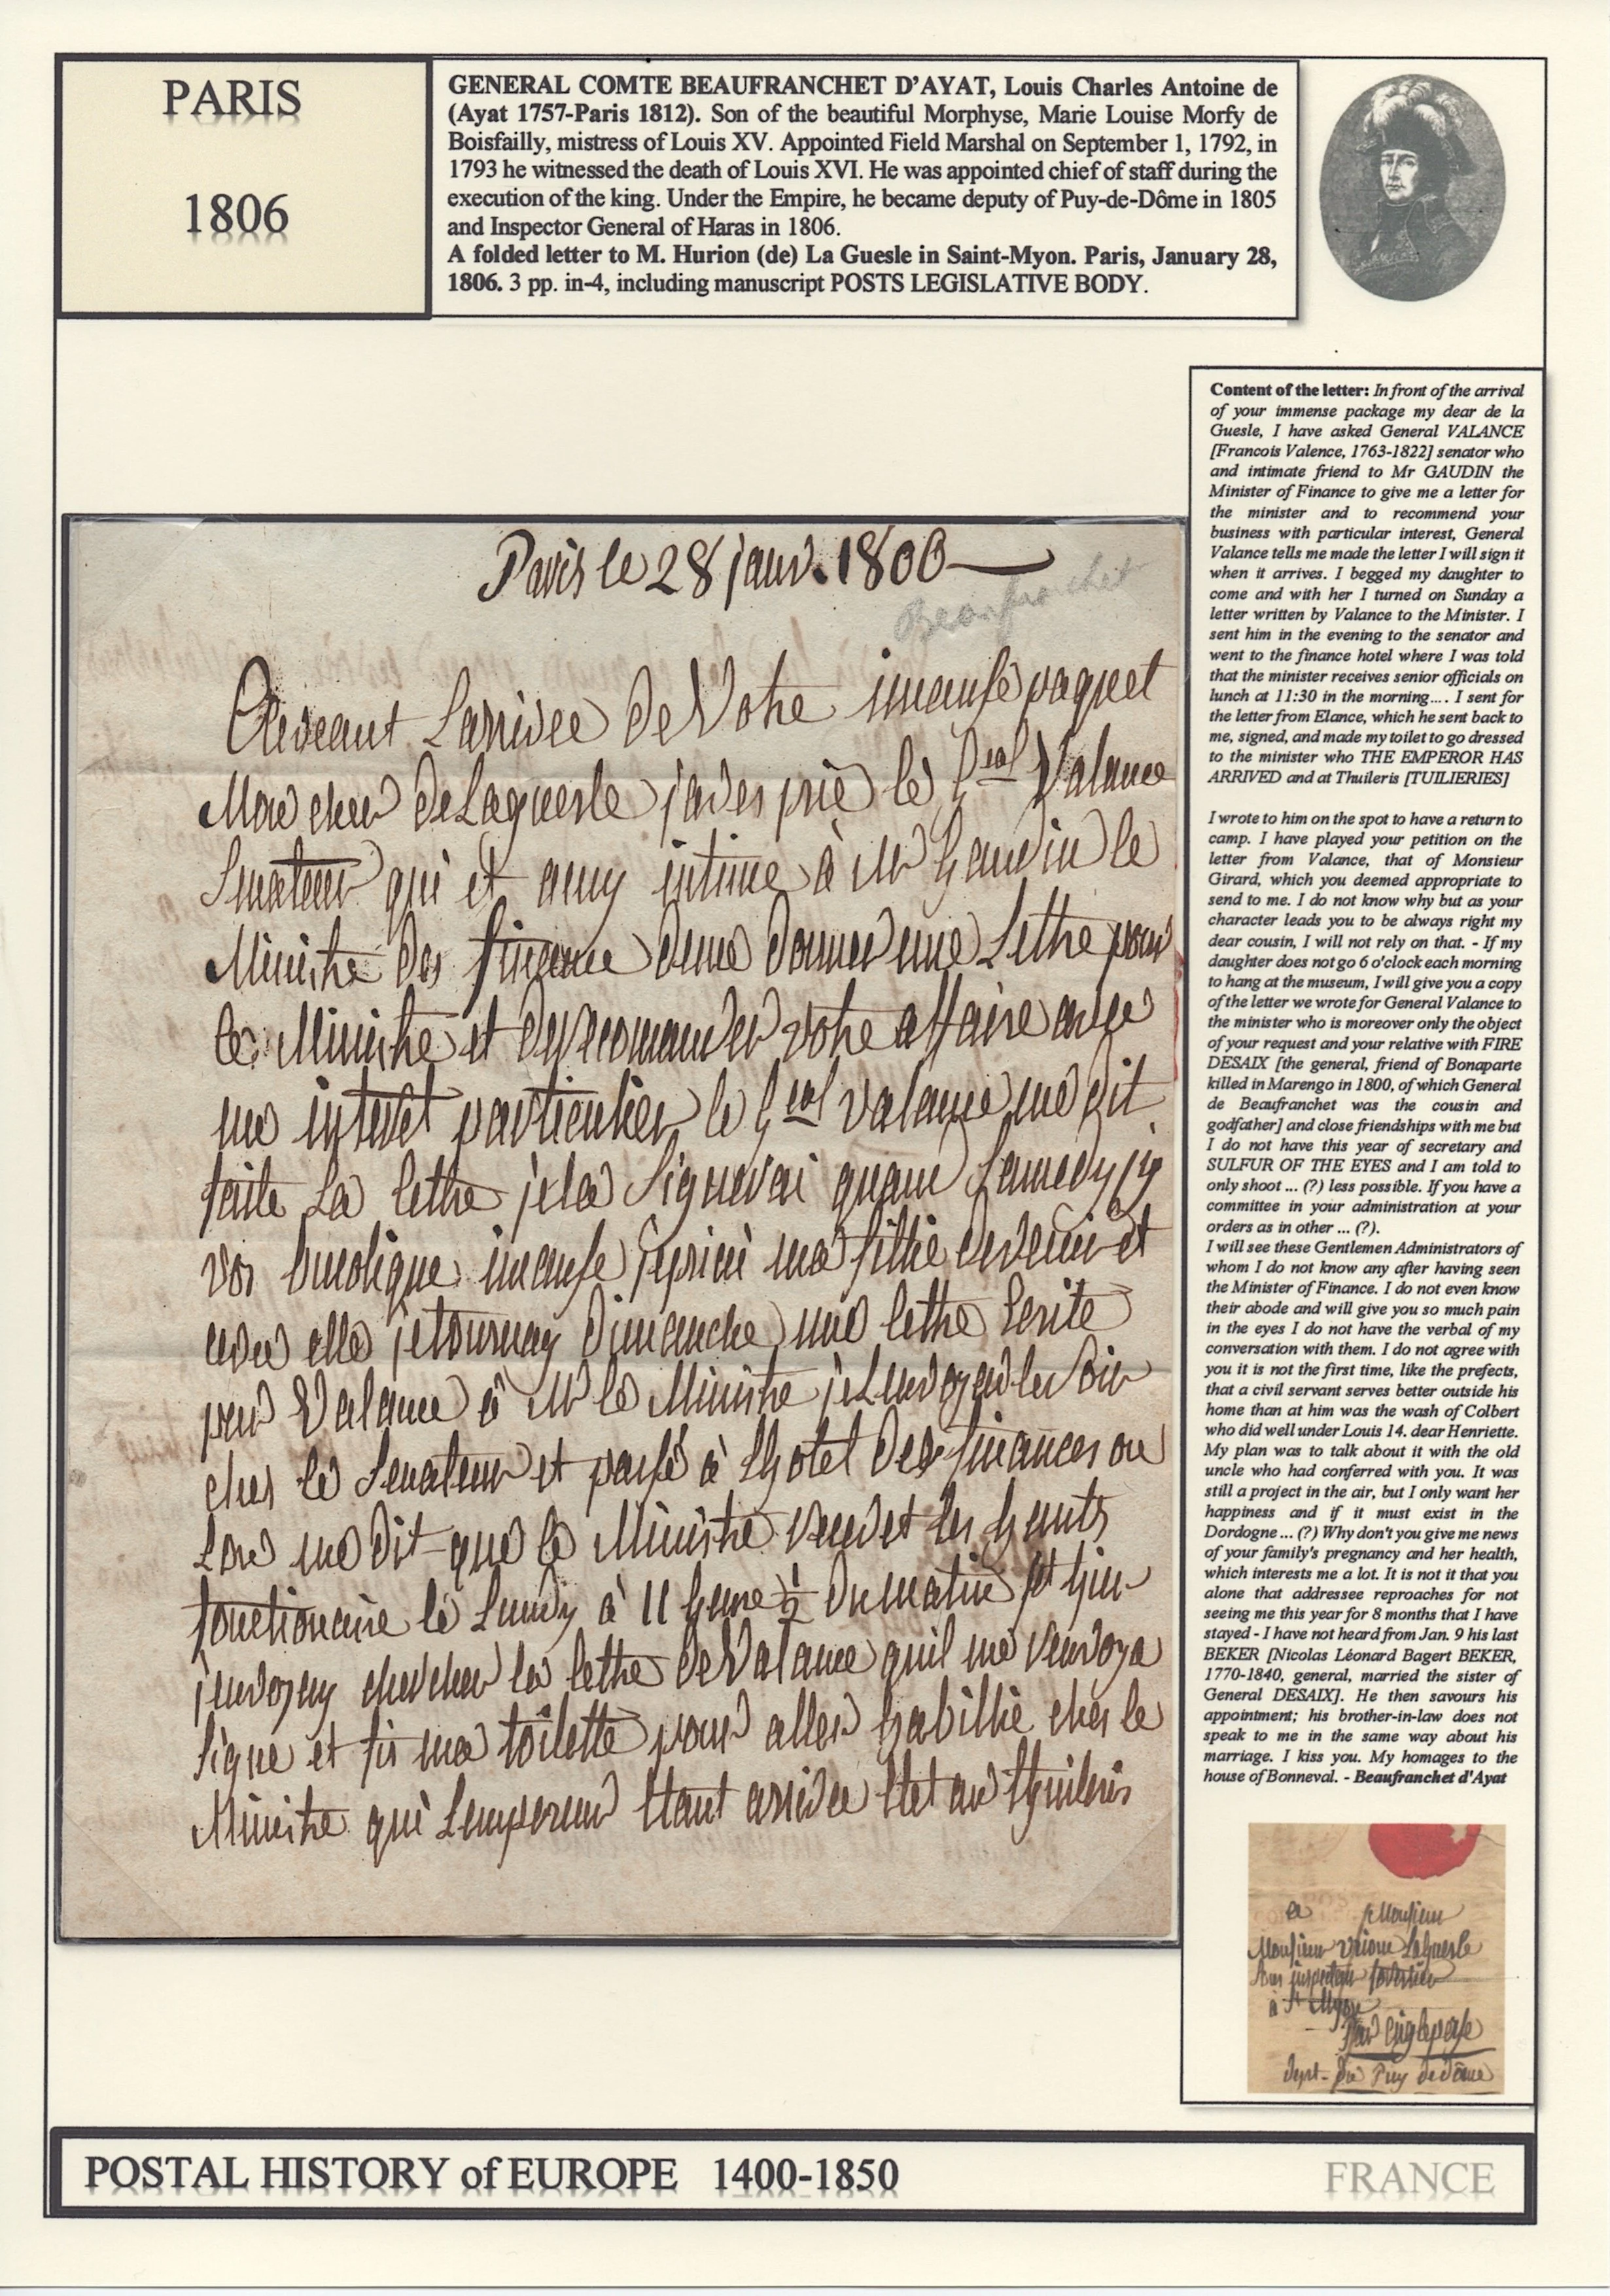 PARIS
1806
GENERAL COMTE BEAUFRANCHET D'AYAT, Louis Charles Antoine de
(Ayat 1757-Paris 1812). Son of the beautiful Morphyse, Marie Louise Morfy de
Boisfailly, mistress of Louis XV. Appointed Field Marshal on September 1, 1792, in
1793 he witnessed the death of Louis XVI. He was appointed chief of staff during the
execution of the king. Under the Empire, he became deputy of Puy-de-Dôme in 1805
and Inspector General of Haras in 1806.
A folded letter to M. Hurion (de) La Guesle in Saint-Myon. Paris, January 28,
1806. 3 pp. in-4, including manuscript POSTS LEGISLATIVE BODY.
Paris le 28 janv. 1806
Beaufrachet
Larrivee de Votre imanse paquet
Mon cher de Laguesle javes prié le Gral Valance
Senateur qui et amy intime à Mr Gaudin le
Ministre des finance deme donner une Lettre pour
le Ministre et votre affaire avec
un interet particulier le Gral Valance me dit
faite La lettre je la Signerai quand
vos imanse ma fillie et
avec elle dimanche une lettre Ecrite
par Valance à Mr le Ministre
ches le Senateur et passé à Lhotel des finances ou
Lon me dit que le Ministre les hauts
fonctionaire le Lundy à 11 heure ½ du matin
jenvoyay chercher la lettre de Valance quil me renvoya
Signe et fis ma toilette pour aller habillié ches le
Ministre qui Lempereur Etant arrivee Etet au Thuileris
Content of the letter: In front of the arrival
of your immense package my dear de la
Guesle, I have asked General VALANCE
[Francois Valence, 1763-1822] senator who
and intimate friend to Mr GAUDIN the
Minister of Finance to give me a letter for
the minister and to recommend your
business with particular interest, General
Valance tells me made the letter I will sign it
when it arrives. I begged my daughter to
come and with her I turned on Sunday a
letter written by Valance to the Minister. I
sent him in the evening to the senator and
went to the finance hotel where I was told
that the minister receives senior officials on
lunch at 11:30 in the morning.... I sent for
the letter from Elance, which he sent back to
me, signed, and made my toilet to go dressed
to the minister who THE EMPEROR HAS
ARRIVED and at Thuileris [TUILIERIES]
I wrote to him on the spot to have a return to
camp. I have played your petition on the
letter from Valance, that of Monsieur
Girard, which you deemed appropriate to
send to me. I do not know why but as your
character leads you to be always right my
dear cousin, I will not rely on that. - If my
daughter does not go 6 o'clock each morning
to hang at the museum, I will give you a copy
of the letter we wrote for General Valance to
the minister who is moreover only the object
of your request and your relative with FIRE
DESAIX [the general, friend of Bonaparte
killed in Marengo in 1800, of which General
de Beaufranchet was the cousin and
godfather] and close friendships with me but
I do not have this year of secretary and
SULFUR OF THE EYES and I am told to
only shoot ... (?) less possible. If you have a
committee in your administration at your
orders as in other ... (?).
I will see these Gentlemen Administrators of
whom I do not know any after having seen
the Minister of Finance. I do not even know
their abode and will give you so much pain
in the eyes I do not have the verbal of my
conversation with them. I do not agree with
you it is not the first time, like the prefects,
that a civil servant serves better outside his
home than at him was the wash of Colbert
who did well under Louis 14. dear Henriette.
My plan was to talk about it with the old
uncle who had conferred with you. It was
still a project in the air, but I only want her
happiness and if it must exist in the
Dordogne ... (?) Why don't you give me news
of your family's pregnancy and her health,
which interests me a lot. It is not it that you
alone that addressee reproaches for not
seeing me this year for 8 months that I have
stayed - I have not heard from Jan. 9 his last
BEKER [Nicolas Léonard Bagert BEKER,
1770-1840, general, married the sister of
General DESAIX]. He then savours his
appointment; his brother-in-law does not
speak to me in the same way about his
marriage. I kiss you. My homages to the
house of Bonneval. - Beaufranchet d'Ayat
a Monsieur
Monsieur LaGuesle
à St Myon
Par
dept. du Puy dedome
POSTAL HISTORY of EUROPE 1400-1850
FRANCE